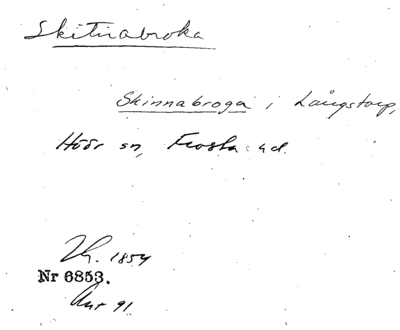 Skitnabroka
Skinnabroga i Långstorp,
Höör sn, Frosta hd.
1854
Nr 6853.
91.